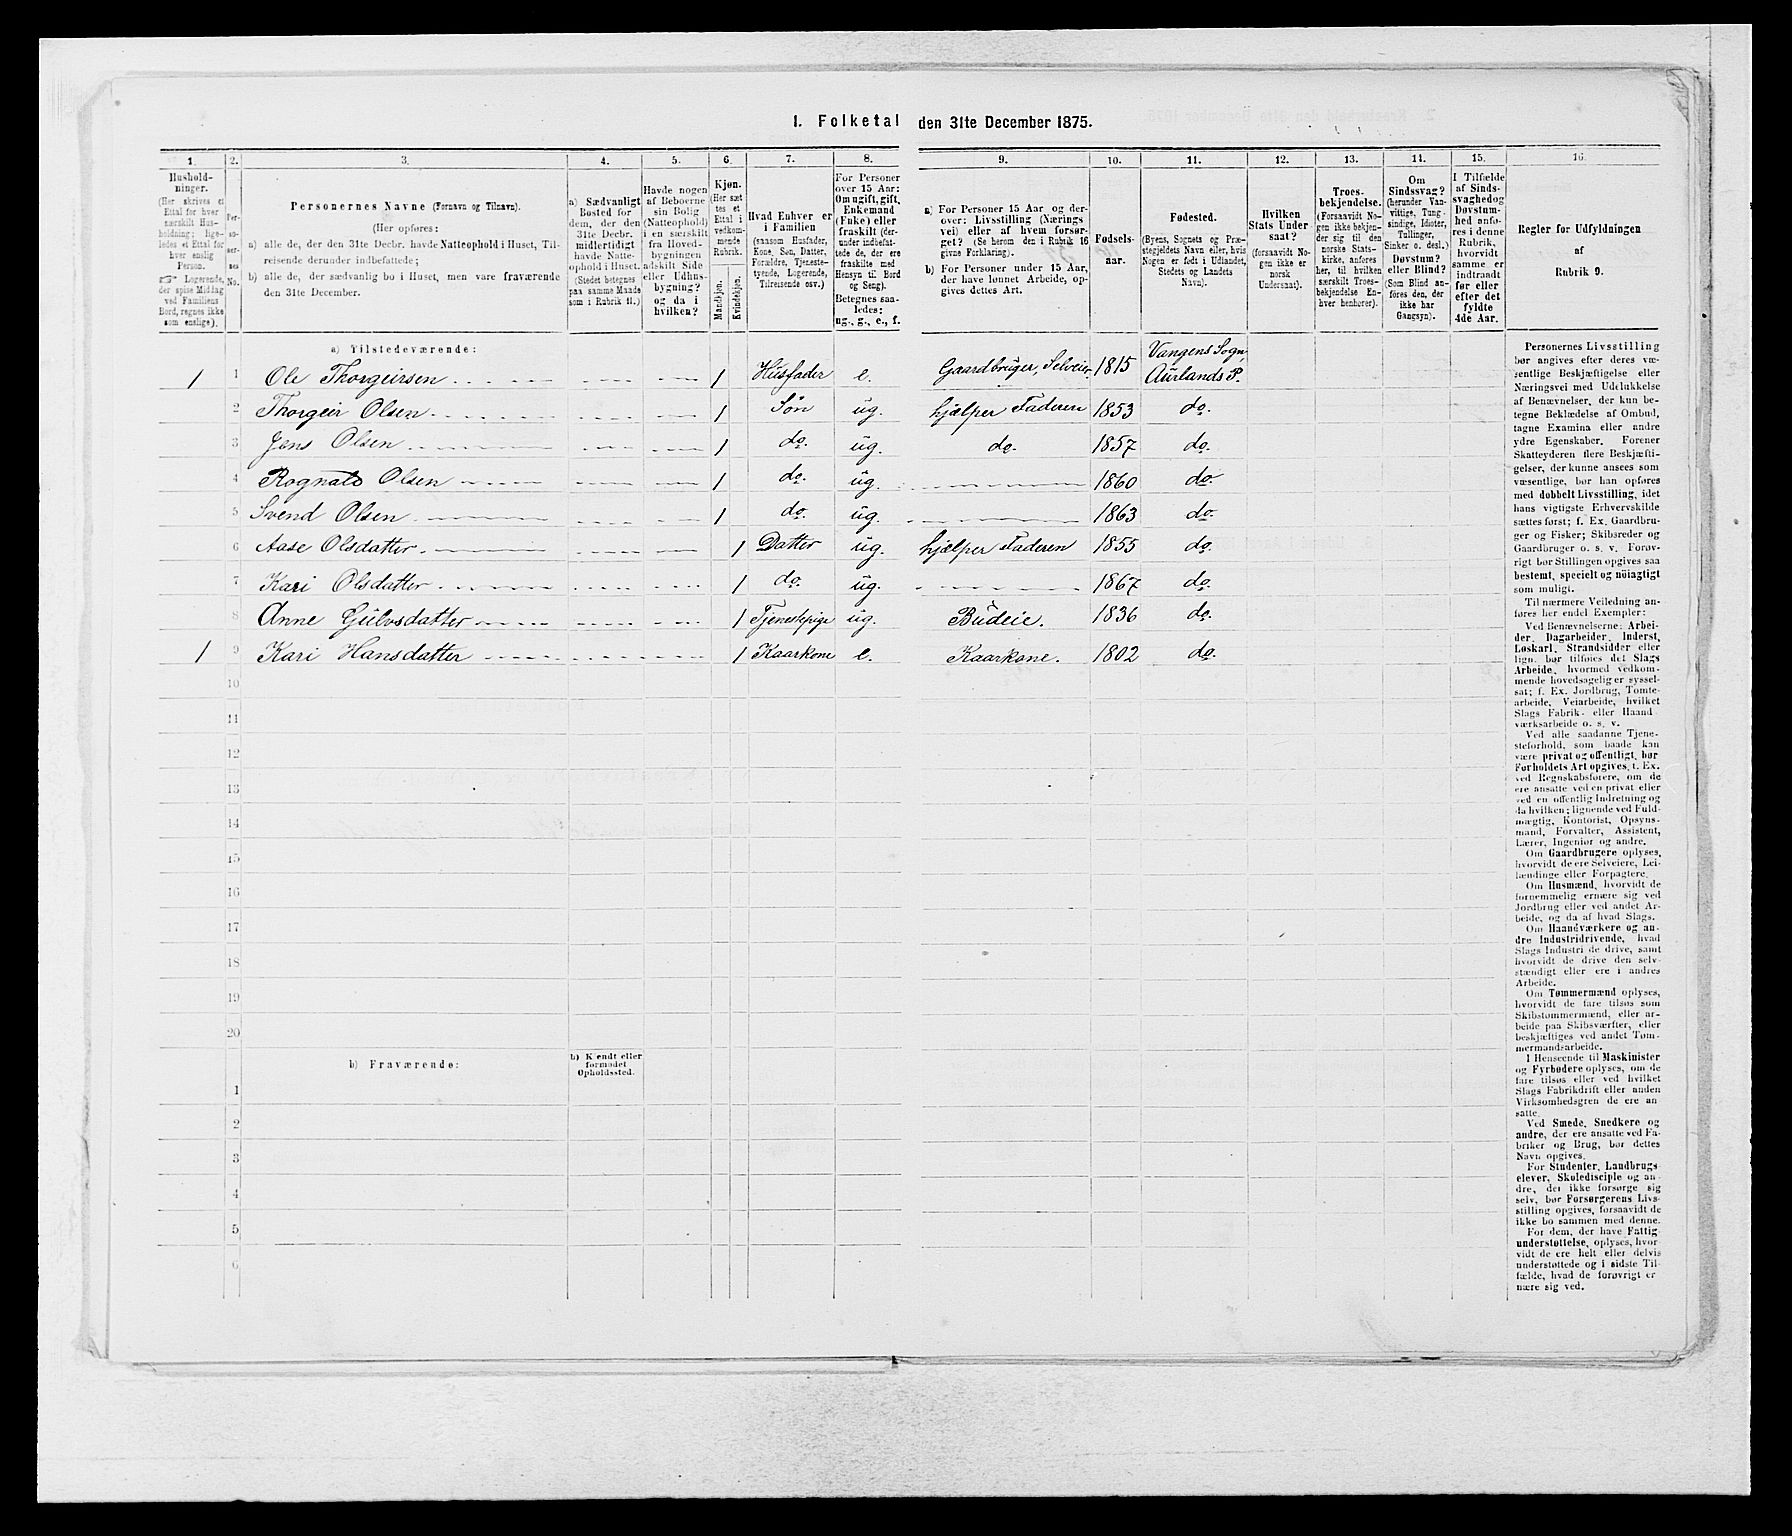 1. Folketal den 31te December 1875.
1. 2. 3. 4. 5. 6. 7. 8. 9. 10. 11. 12. 13. 14. 15. 16.
Hushold-
ninger.
(Her skrives et
Ettal for hver
særskilt Hus-
holdning; lige-
ledes et Ettal for
hver enslig
Person.
☞ Logerende,
der spise Middag
ved Familiens
Bord, regnes ikke
som enslige).
Per-
so-
ner-
nes
No.
Personernes Navne (Fornavn og Tilnavn).
(Her opføres:
a) alle de, der den 31te Decbr. havde Natteophold i Huset, Til-
reisende derunder indbefattede;
b) alle de, der sædvanlig bo i Huset, men vare fraværende
den 31te December.
a) Sædvanligt
Bosted for
dem, der den
31te Decbr.
midlertidigt
havde Natte-
ophold i Huset.
(Stedet betegnes
paa samme Maade
som i Rubrik 11.)
Havde nogen
af Beboerne
sin Bolig
(Natteophold)
i en særskilt
fra Hoved-
bygningen
adskilt Side
eller Udhus-
bygning?
og da i
hvilken?
Kjøn.
(Her sæt-
tes et
Ettal i
vedkom-
mende
Rubrik.
Mandkjøn.
Kvindekjøn.
Hvad Enhver er
i Familien
(saasom Husfader,
Kone, Søn, Datter,
Forældre, Tjeneste-
tyende, Logerende,
Tilreisende osv.)
For Personer
over 15 Aar:
Om ugift, gift,
Enkemand
(Enke) eller
fraskilt (der-
under indbefat-
tede de, der ere
fraskilte med
Hensyn til Bord
og Seng).
Betegnes saa-
ledes:
ug., g., e., f.
a) For Personer 15 Aar og der-
over: Livsstilling (Nærings
vei) eller af hvem forsør-
get? (Se herom den i Rubrik 16
givne Forklaring).
b) For Personer under 15 Aar,
der have lønnet Arbeide, op-
gives dettes Art.
Fødsels-
aar.
Fødested.
(Byens, Sognets og Præ-
stegjeldets Navn eller, hvis
Nogen er født i Udlandet,
Stedets og Landets
Navn).
Hvilken
Stats Under
saat?
(forsaavidt No-
gen ikke er
norsk
Undersaat).
Troes-
bekjendelse.
(Forsaavidt No-
gen ikke bekjen-
der sig til den
norske Stats-
kirke, anføres
her, til hvilken
særskilt Troes-
bekjendelse En-
hver henhører).
Om
Sindssvag?
(herunder Van-
vittige, Tung-
sindige, Idioter,
Tullinger,
Sinker o. desl.)
Døvstum?
eller Blind?
(Som Blind an-
føres den, der
ikke har
Gangsyn).
I Tilfælde
af Sinds-
svaghed og
Døvstum-
hed anfø-
res i denne
Rubrik,
hvorvidt
samme er
indtraadt
før eller
efter det
fyldte
4de Aar.
Regler for Udfyldningen
af
Rubrik 9.
a) Tilstedeværende:
1 1 Ole Thorgeirsen 1 Husfader e. Gaardbruger, Selveier 1815 Vangens Sogn, Aurlands P.
2 Thorgeir Olsen 1 Søn ug. hjælper Faderen 1853 do.
3 Jens Olsen 1 do. ug. do. 1857 do.
4 Rognald Olsen 1 do. ug. 1860 do.
5 Svend Olsen 1 do. ug. 1863 do.
6 Aase Olsdatter 1 Datter ug. hjælper Faderen 1855 do.
7 Kari Olsdatter 1 do. ug. 1867 do.
8 Anne Gulvsdatter 1 Tjenestepige ug. Budeie. 1836 do.
1 9 Kari Hansdatter 1 Kaarkone e. Kaarkone. 1802 do.
10
11
12
13
14
15
16
17
18
19
20
b) Fraværende:
b) Kjendt eller
formodet
Opholdssted.
1
2
3
4
5
6
Personernes Livsstilling
bør angives efter deres væ-
sentlige Beskjæftigelse eller
Næringsvei med Udelukkelse
af Benævnelser, der kun be-
tegne Beklædelse af Ombud,
tagne Examina eller andre
ydre Egenskaber. Forener
Skatteyderen flere Beskjæfti-
gelser, der kunne ansees som
væsentlige, bør han opføres
med dobbelt Livsstilling, idet
hans vigtigste Erhvervskilde
sættes først; f. Ex. Gaardbru-
ger og Fisker; Skibsreder og
Gaardbruger o. s. v. Forøv-
rigt bør Stillingen opgives saa
bestemt, specielt og nöiagtigt
som muligt.
Til nærmere Veiledning an-
føres her endel Exempler:
Ved Benævnelserne: Arbei-
der, Dagarbeider, Inderst,
Løskarl, Strandsidder eller
lign. bør tilføies det Slags
Arbeide, hvormed vedkom-
mende hovedsagelig er syssel-
sat; f. Ex. Jordbrug, Tomte-
arbeide, Veiarbeide, hvilket
Slags Fabrik- eller Haand-
værksarbeide o. s. v.
Ved alle saadanne Tjene-
steforhold, som baade kan
være privat og offentligt, bør
Forholdets Art opgives, f. Ex.
ved Regnskabsførere, om de
ere ansatte ved en privat eller
ved en offentlig Indretning og
da hvilken; lignende ved Fuld-
mægtig, Kontorist, Opsyns-
mand, Forvalter, Assistent,
Lærer, Ingeniør og andre.
Om Gaardbrugere oplyses,
hvorvidt de ere Selveiere, Lei-
lændinge eller Forpagtere.
Om Husmænd, hvorvidt de
fornemmelig ernære sig ved
Jordbrug eller ved andet Ar-
beide, og da af hvad Slags.
Om Haandværkere og an-
dre Industridrivende, hvad
Slags Industri de drive, samt
hvorvidt de drive den selv-
stændigt eller ere i andres
Arbeide.
Om Tømmermænd oplyses,
hvorvidt de fare tilsøs som
Skibstømmermænd, eller ar-
beide paa Skibsværfter, eller
beskjæftiges ved andet Tøm-
mermandsarbeide.
I Henseende til Maskinister
og Fyrbødere oplyses, om de
fare tilsøs eller ved hvilket
Slags Fabrikdrift eller anden
Virksomhedsgren de ere an-
satte.
Ved Smede, Snedkere og
andre, der ere ansatte ved Fa-
briker og Brug, bør dettes
Navn opgives.
For Studenter, Landbrugs-
elever, Skoledisciple og an-
dre, der ikke forsørge sig
selv, bør Forsørgerens Livs-
stilling opgives, forsaavidt de
ikke bo sammen med denne.
For dem, der have Fattig-
understøttelse, oplyses, hvor-
vidt de ere helt eller delvis
understøttede og i sidste Til-
fælde, hvad de forøvrigt er-
nære sig ved.